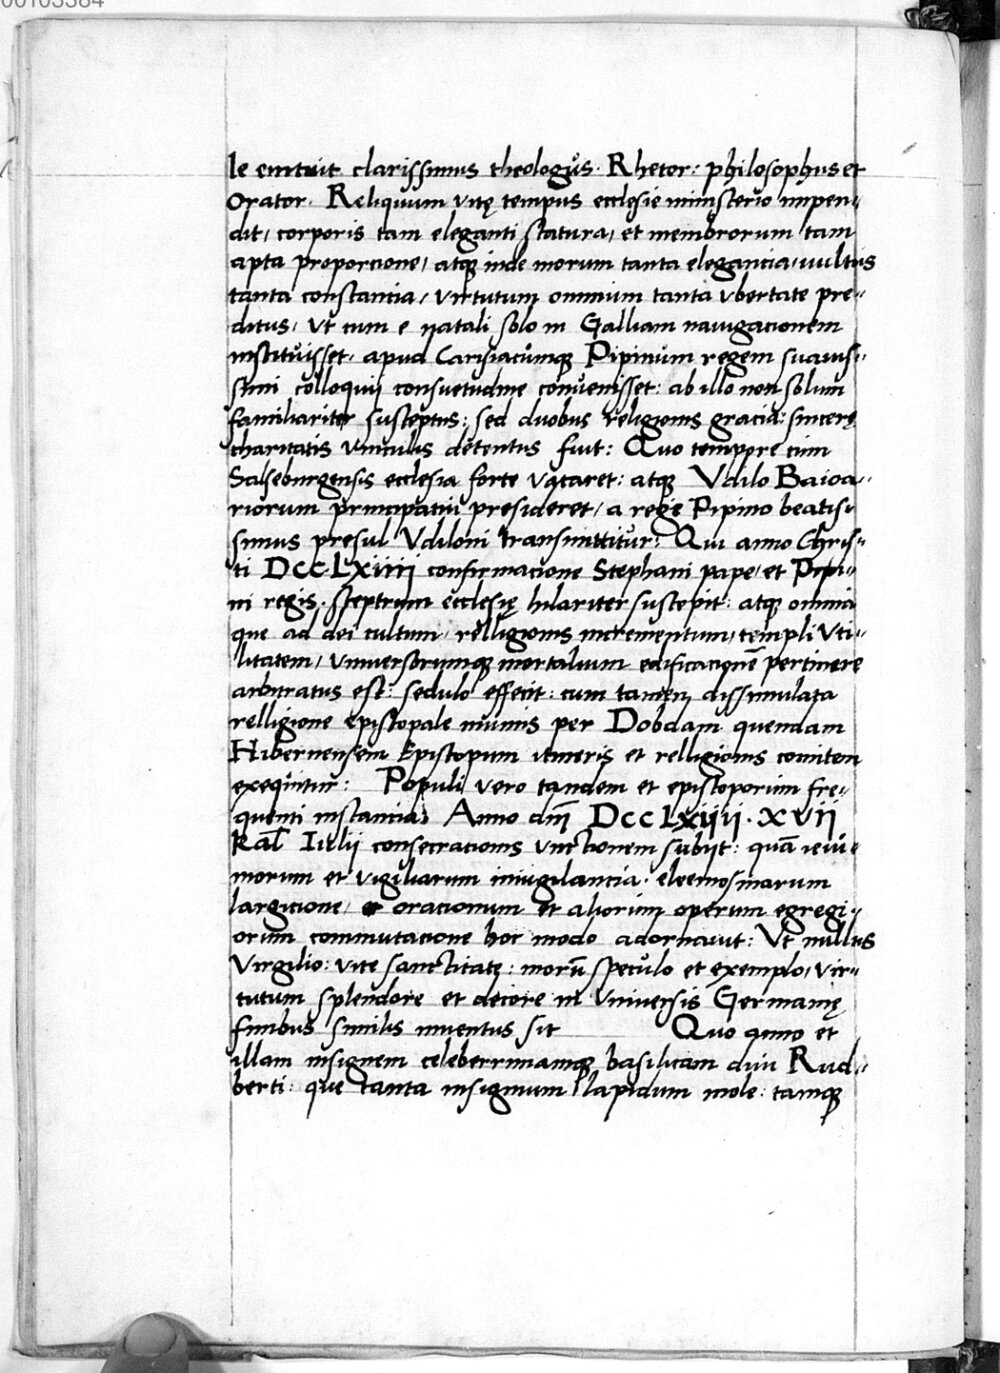 00103384
le emicuit clarissimus theologus. Rhetor: philosophus et
Orator. Reliquum vitę tempus ecclesie ministerio impen-
dit, corporis tam eleganti statura, et membrorum tam
apta proporcione, atque inde morum tanta elegancia, uultus
tanta constantia, virtutum omnium tanta vbertate pre-
ditus, vt cum e natali solo in Galliam nauigacionem
instituisset, apud Carisiacumque Pipinum regem suauis-
simi colloquii consuetudine conuenisset: ab illo non solum
familiariter susceptus: sed duobus religionis gracia: sincerę
charitatis vinculis detentus fuit: Quo tempore cum
Salseburgensis ecclesia forte vacaret: atque Vdilo Baioa-
riorum principatui presideret, a rege Pipino beatis-
simus presul Vdiloni transmittitur: Qui anno Chris-
ti DccLxiiii confirmacione Stephani pape, et Pipi-
ni regis, sceptrum ecclesię hilariter suscepit: atque omnia
que ad dei cultum, relligionis incrementum, templi vti-
litatem, vniversorumque mortalium edificacionē pertinere
arbitratus est: sedulo effecit: cum tamen dissimulata
relligione episcopale munus per Dobdam quendam
Hibernensem Episcopum itineris et relligionis comitem
exequitur: Populi vero tandem et episcoporum fre-
quenti instantia: Anno dnī DccLxiiii. xvii
Kal Iulii consecracionis vnctionem subiit: quā ieiu-
morum et vigiliarum inuigilantia, eleemosinarum
largicione, et oracionum et aliorum operum egregi-
orum commutacione hoc modo adornauit: Vt nullus
Virgilio: vite sanctitate: morū speculo et exemplo, vir-
tutum splendore et decore in vniuersis Germanię
finibus similis inuentus sit Quo anno et
illam insignem celeberrimamque basilicam diui Rud-
berti: que tanta insignium lapidum mole: tamque